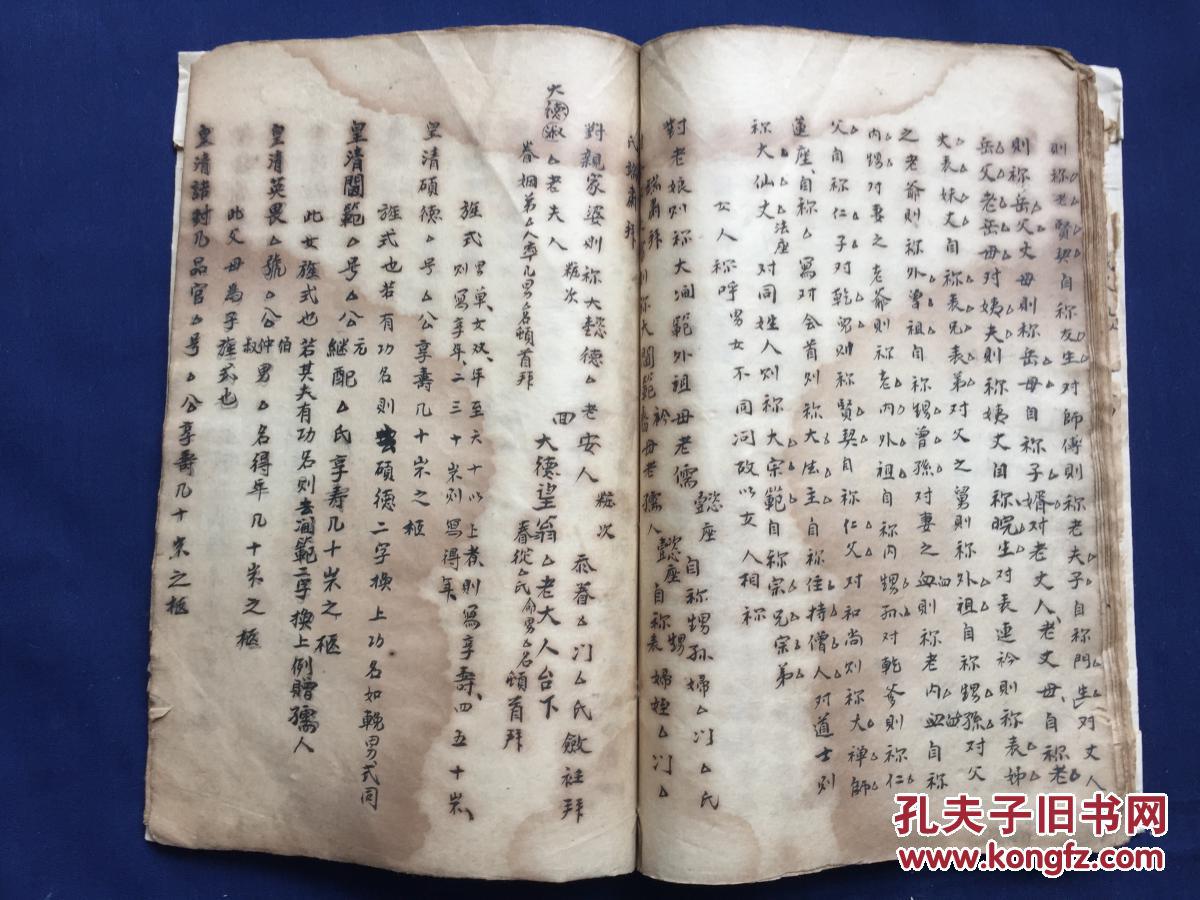 則称老賢契自称友生对師傅則称老夫子自称門生对丈人
則称岳父丈母則称岳母自称子婿对老丈人△老丈母△自称老
岳父老岳母对姨夫則称姨丈自称晩生对表連衿則称表姊
丈表妹丈自称表兄表弟对父之舅則称外祖自称甥孫对父
之老爺則称外曾祖自称甥曾孫对妻之血則称老内血自称
内甥对妻之老爺則称老内外祖自称内甥孫对乾爹則称仁
父自称仁子对乾男則称賢契自称仁父对和尚則称大禅師
蓮座△自称△寫对会首則称大法主自称住持僧人对道士則
称大仙丈△法座对同姓人則称大宗範自称宗兄宗弟
女人称呼男女不同问故以女人相称
對老娘則称大閫範外祖母老儒懿座自称甥孫婦△门△氏
端肅拜則称大閫範衿母老孺人懿座自称表甥婦姪△门△
氏端肅拜
對親家婆則称大懿德△老安人粧次忝眷△门△氏斂衽拜
大德淑△老夫人粧次回大德望翁△老大人台下
眷姻弟△人率几男△名頓首拜眷從△氏命男△名頓首拜
旌式男單女双年至六十以上者則寫享壽四五十岽
則寫享年二三十岽則寫得年
皇清碩德△号△公享壽几十岽之柩
旌式也若有功名則去碩德二字換上功名如輓男式同
皇清閫範△号△公元継配△氏享壽几十岽之柩
此女旌式也若其夫有功名則去閫範二字換上例贈孺人
皇清英畏△號△公伯仲叔男△名得年几十岽之柩
此父母為子旌式也
皇清誥封几品官△号△公享壽几十岽之柩
孔夫子旧书网
www.kongfz.com